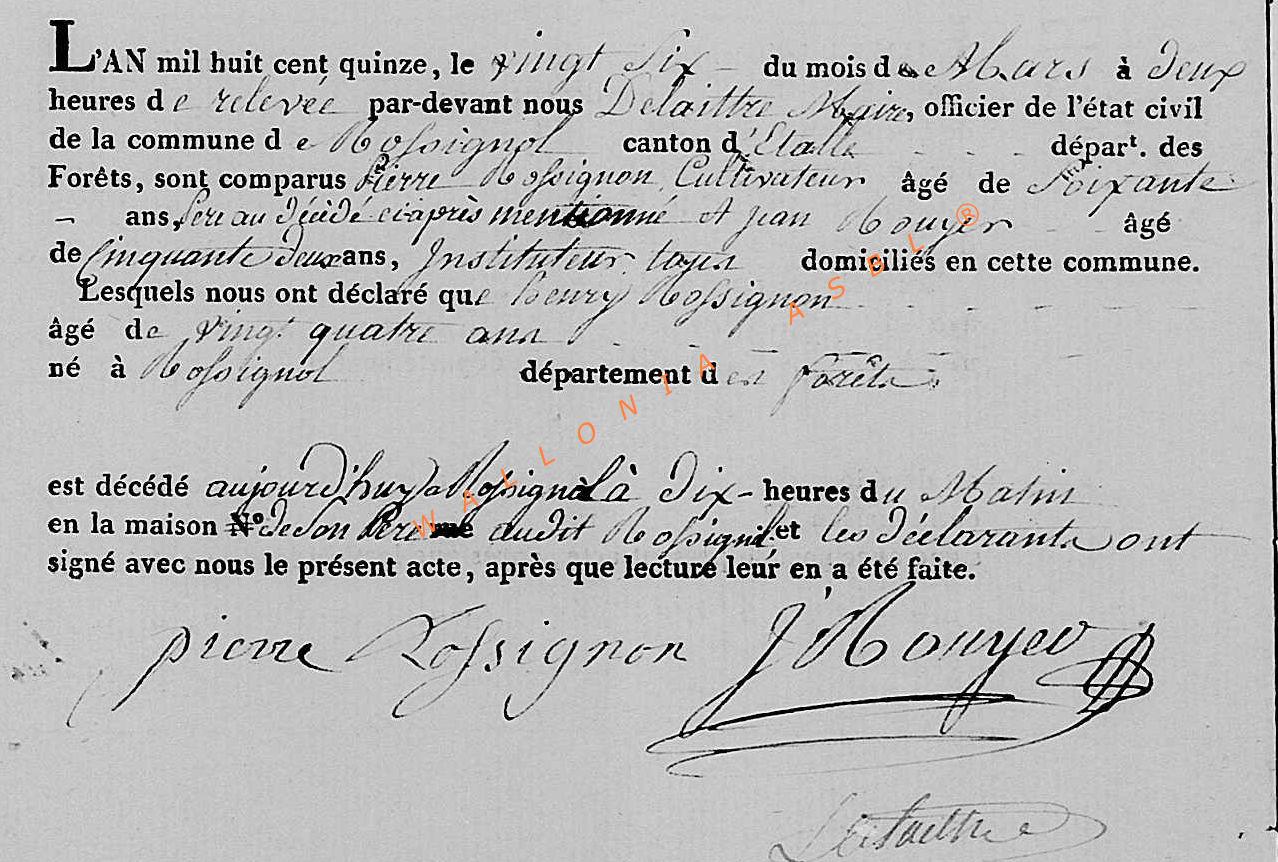 L'AN mil huit cent quinze, le vingt Six - du mois de Mars à deux
heures de relevée par-devant nous Delaittre Maire, officier de l'état civil
de la commune de Rossignol canton d'Etalle - - - départ. des
Forêts, sont comparus Pierre Rossignon Cultivateur âgé de Soixante
- ans, Pere au décédé ci après mentionné et Jean Rouyer - - âgé
de Cinquante deux ans, Instituteur, tous domiciliés en cette commune.
Lesquels nous ont déclaré que henry Rossignon
âgé de vingt quatre ans
né à Rossignol département des forêts
est décédé aujourd'huy a Rossignol à dix - heures du Matin
en la maison N° de Son Pere audit Rossignol et les déclarants ont
signé avec nous le présent acte, après que lecture leur en a été faite.
pierre Rossignon J Rouyer
Delaittre
WALLONIA ASBL ®